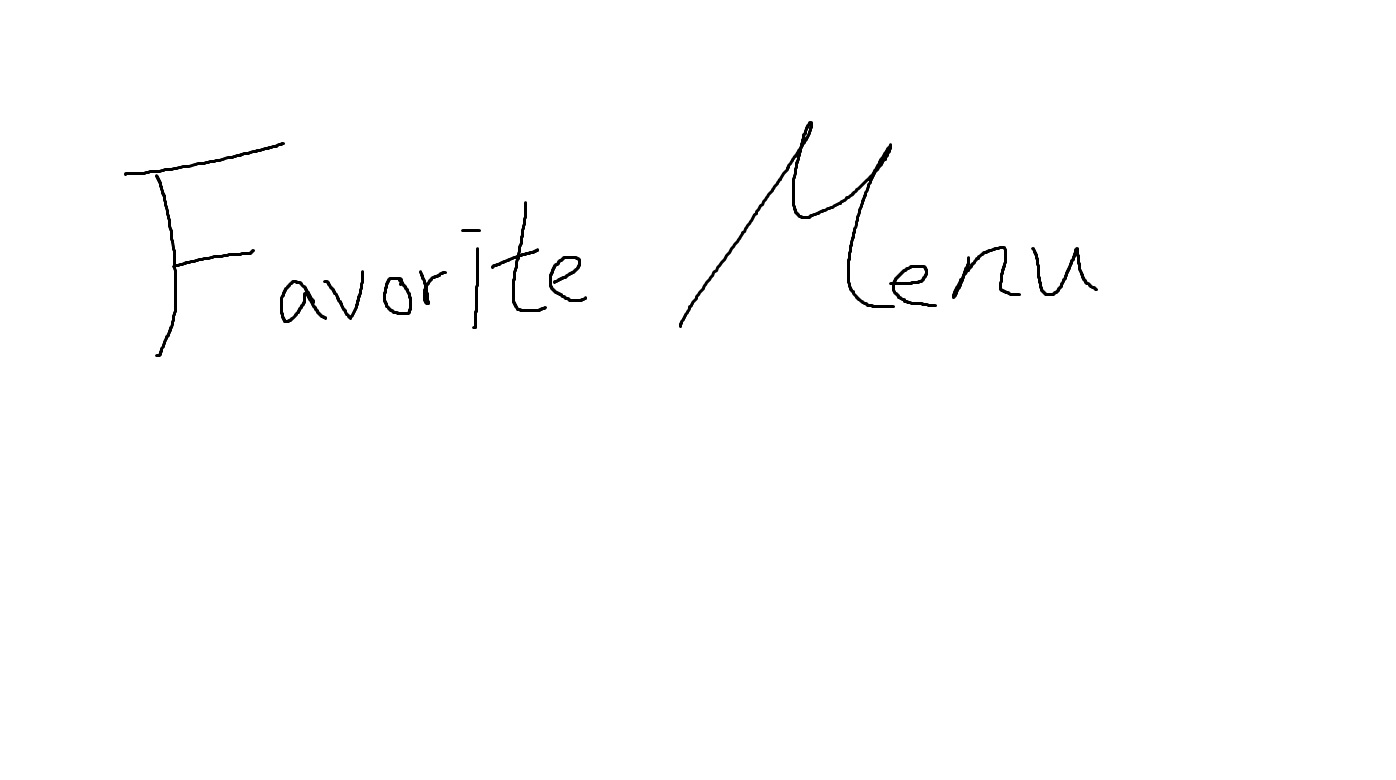 Favorite Menu